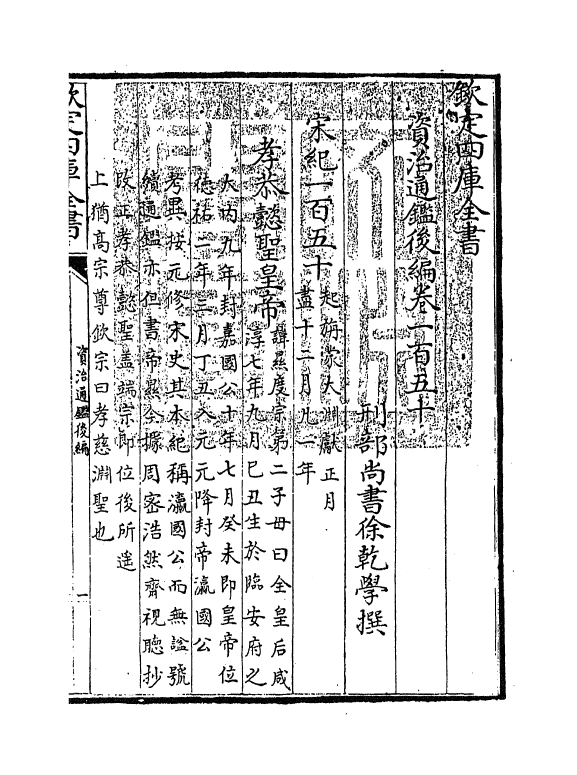 欽定四庫全書
資治通鑑後編卷一百五十
刑部尚書徐乾學撰
宋紀一百五十
起旃蒙大淵獻正月
盡十二月凡一年
孝恭懿聖皇帝
諱㬎度宗第二子母曰全皇后咸
淳七年九月己丑生於臨安府之
大内九年封嘉國公十年七月癸未即皇帝位
德祐二年三月丁丑入元元降封帝瀛國公
考異按元修宋史其本紀稱瀛國公而無諡號
續通鑑亦但書帝㬎今據周密浩然齋視聽抄
改正孝恭懿聖蓋端宗即位後所遙
上猶髙宗尊欽宗曰孝慈淵聖也
欽定四庫全書
資治通鑑後編
一